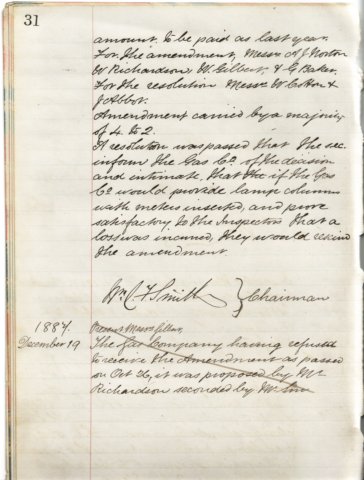 31
amount to be paid as last year.
For the amendment, Messrs A J Norton
W Richardson, W. Gilbert, & G Baker.
For the resolution Messrs W Cotton &
J Abbot.
Amendment carried by a majority
of 4 to 2.
A resolution was passed that the sec.
inform the Gas Co. of the decision
and intimate that the if the Gas
Co would provide lamp columns
with meters inserted, and prove
satisfactory to the Inspectors that a
loss was incurred, they would rescind
the amendment.
Wm C F Smith } Chairman
1887. Present Messrs
December 19 The Gas Company having refused
to receive the Amendment as passed
on Oct 26, it was proposed by Mr
Richardson seconded by Mr